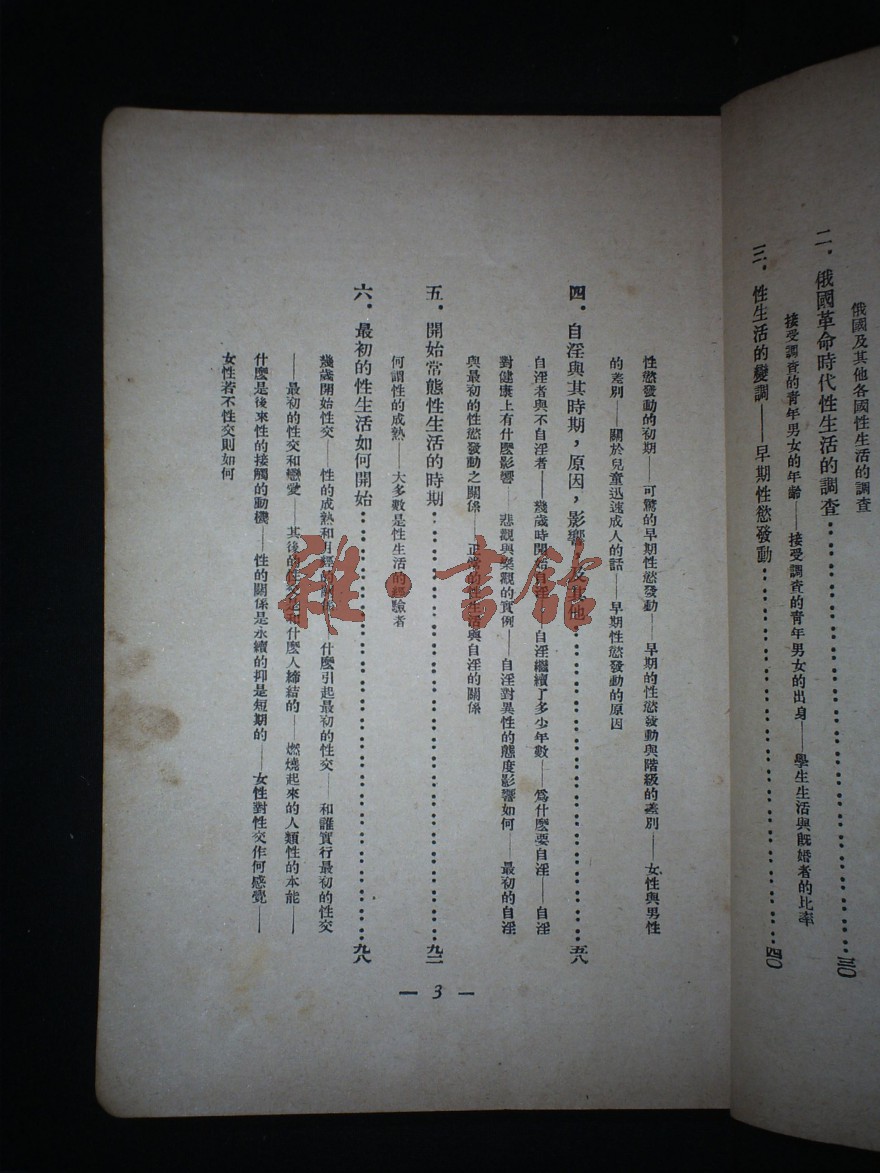 俄國及其他各國性生活的調查
二．俄國革命時代性生活的調查……三〇
接受調查的青年男女的年齡——接受調查的青年男女的出身——學生生活與既婚者的比率
三．性生活的變調——早期性慾發動……四〇
性慾發動的初期——可驚的早期性慾發動——早期的性慾發動與階級的差別——女性與男性
的差別——關於兒童迅速成人的話——早期性慾發動的原因
四．自淫與其時期，原因，影響，及其他……五八
自淫者與不自淫者——幾歲時開始自淫——自淫繼續了多少年數——爲什麼要自淫——自淫
對健康上有什麼影響——悲觀與樂觀的實例——自淫對異性的態度影響如何——最初的自淫
與最初的性慾發動之關係——正常的性生活與自淫的關係
五．開始常態性生活的時期……九二
何謂性的成熟——大多數是性生活的經驗者
六．最初的性生活如何開始……九八
幾歲開始性交——性的成熟和月經的關係——什麼引起最初的性交——和誰實行最初的性交
——最初的性交和戀愛——其後的性交是和什麼人締結的——燃燒起來的人類性的本能——
什麼是後來性的接觸的動機——性的關係是永續的抑是短期的——女性對性交作何感覺——
女性若不性交則如何
— 3 —
雅·書館